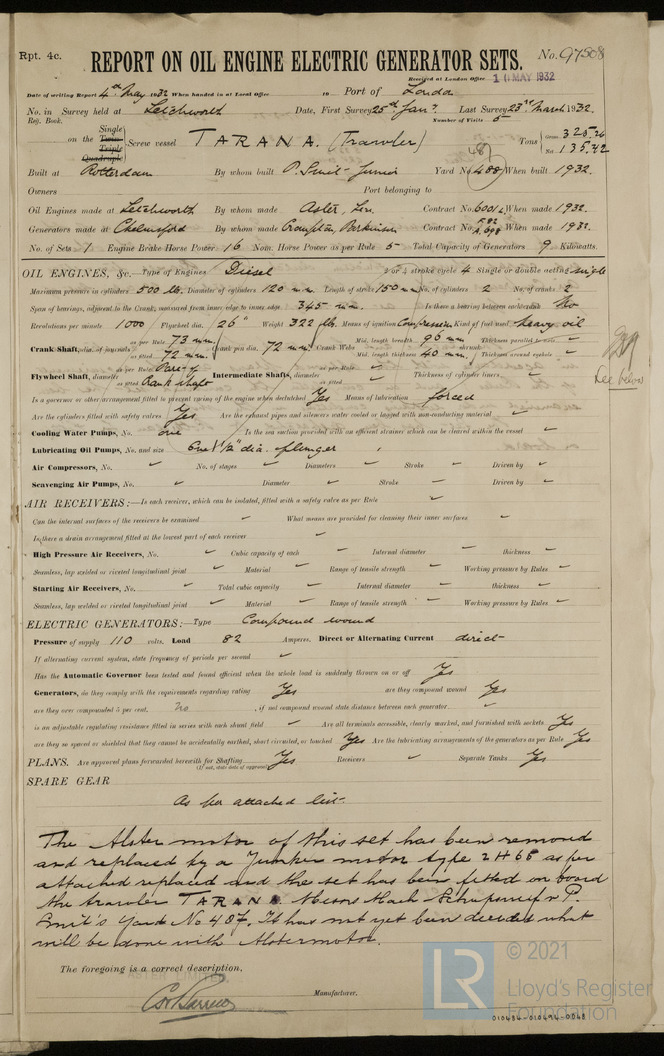 Rpt. 4c.
REPORT ON OIL ENGINE ELECTRIC GENERATOR SETS.
No. 97508
Received at London Office 10 MAY 1932
Date of writing Report 4th May 1932 When handed in at Local Office 19 Port of London
No. in Survey held at Letchworth Date, First Survey 25th Jany. Last Survey 23rd March 1932.
Reg. Book. Number of Visits 5
on the Single Twin Triple Quadruple Screw vessel TARANA. (Trawler) Tons Gross 325.26 Net 135.42
487
Built at Rotterdam By whom built P. Smit Junior Yard No. 488 When built 1932.
Owners Port belonging to
Oil Engines made at Letchworth By whom made Aster, Ltd. Contract No. 6001 When made 1932.
Generators made at Chelmsford By whom made Crompton Parkinson Contract No. When made 1932.
No. of Sets 1 Engine Brake Horse Power 16 Nom. Horse Power as per Rule 5 Total Capacity of Generators 9 Kilowatts.
OIL ENGINES, &c. Type of Engines Diesel 2 or 4 stroke cycle 4 Single or double acting single
Maximum pressure in cylinders 500 lb. Diameter of cylinders 120 mm. Length of stroke 150 mm No. of cylinders 2 No. of cranks 2
Span of bearings, adjacent to the Crank, measured from inner edge to inner edge 345 mm. Is there a bearing between each crank No
Revolutions per minute 1000 Flywheel dia. 26" Weight 322 lbs. Means of ignition Compression Kind of fuel used heavy oil
Crank Shaft, dia. of journals as per Rule 73 mm. as fitted 72 mm. Crank pin dia. 72 mm Crank Webs Mid. length breadth 96 mm Mid. length thickness 40 mm. Thickness parallel to axis ✓ Thickness around eyehole ✓
See below
Flywheel Shaft, diameter as per Rule Part of as fitted Crank shaft Intermediate Shafts, diameter as per Rule ✓ as fitted ✓ Thickness of cylinder liners ✓
Is a governor or other arrangement fitted to prevent racing of the engine when declutched Yes Means of lubrication forced
Are the cylinders fitted with safety valves Yes Are the exhaust pipes and silencers water cooled or lagged with non-conducting material ✓
Cooling Water Pumps, No. one Is the sea suction provided with an efficient strainer which can be cleared within the vessel ✓
Lubricating Oil Pumps, No. and size One 1½" dia. plunger
Air Compressors, No. ✓ No. of stages ✓ Diameters ✓ Stroke ✓ Driven by ✓
Scavenging Air Pumps, No. ✓ Diameter ✓ Stroke ✓ Driven by ✓
AIR RECEIVERS:—Is each receiver, which can be isolated, fitted with a safety valve as per Rule ✓
Can the internal surfaces of the receivers be examined ✓ What means are provided for cleaning their inner surfaces ✓
Is there a drain arrangement fitted at the lowest part of each receiver ✓
High Pressure Air Receivers, No. ✓ Cubic capacity of each ✓ Internal diameter ✓ thickness ✓
Seamless, lap welded or riveted longitudinal joint ✓ Material ✓ Range of tensile strength ✓ Working pressure by Rules ✓
Starting Air Receivers, No. ✓ Total cubic capacity ✓ Internal diameter ✓ thickness ✓
Seamless, lap welded or riveted longitudinal joint ✓ Material ✓ Range of tensile strength ✓ Working pressure by Rules ✓
ELECTRIC GENERATORS:—Type Compound wound
Pressure of supply 110 volts. Load 82 Amperes. Direct or Alternating Current direct
If alternating current system, state frequency of periods per second ✓
Has the Automatic Governor been tested and found efficient when the whole load is suddenly thrown on or off Yes
Generators, do they comply with the requirements regarding rating Yes are they compound wound Yes
are they over compounded 5 per cent. No , if not compound wound state distance between each generator ✓
is an adjustable regulating resistance fitted in series with each shunt field ✓ Are all terminals accessible, clearly marked, and furnished with sockets Yes
are they so spaced or shielded that they cannot be accidentally earthed, short circuited, or touched Yes Are the lubricating arrangements of the generators as per Rule Yes
PLANS. Are approved plans forwarded herewith for Shafting Yes Receivers ✓ Separate Tanks Yes
(If not, state date of approval)
SPARE GEAR
As per attached list.
The Alster motor of this set has been removed
and replaced by a Junker motor type 2 H 65 as per
attached replaced and the set has been fitted on board
the trawler TARANA Messrs Mach Schpswerf v P.
Smit's Yard No 487. It has not yet been decided what
will be done with Alstermotor.
The foregoing is a correct description,
Manufacturer.
© 2021
LR
Lloyd's Register
Foundation
010484-010494-0048